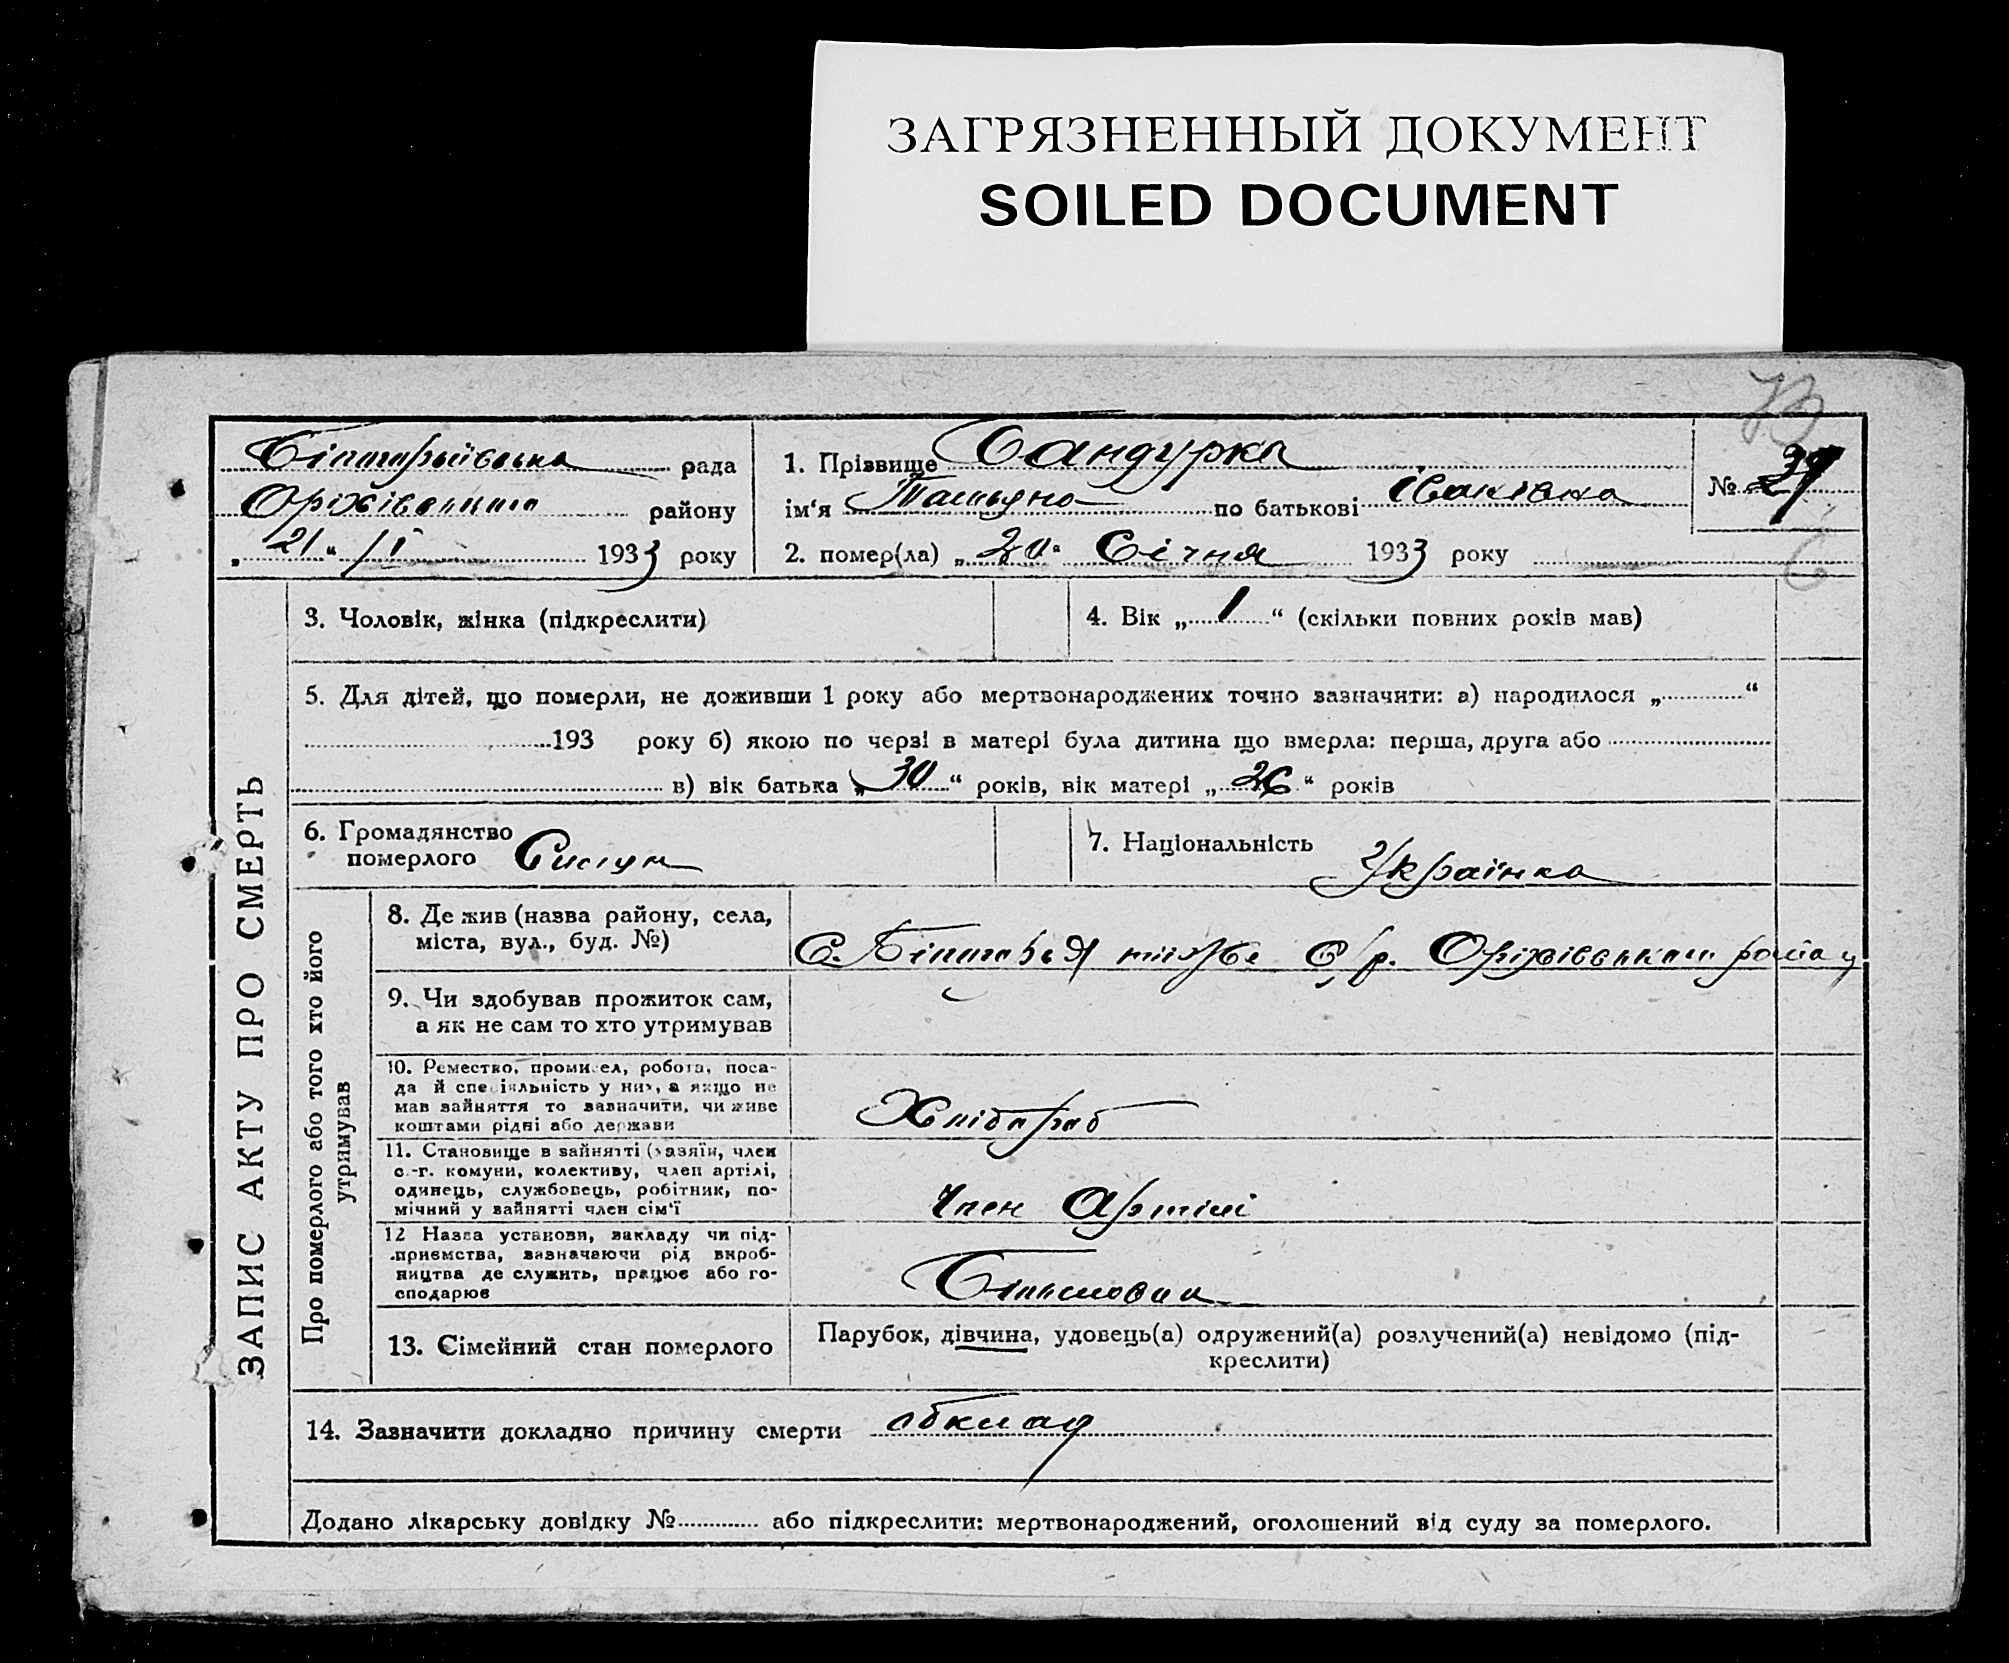 ЗАГРЯЗНЕННЫЙ ДОКУМЕНТ
SOILED DOCUMENT
Білогорьївська рада
Оріхівського району
„ 21 “ / I 1933 року
1. Прізвище Бандурка
ім'я Татьяна по батькові Іванівна
№ 39
2. помер(ла) „ 20 “ Січня 1933 року
ЗАПИС АКТУ ПРО СМЕРТЬ
3. Чоловік, жінка (підкреслити)
4. Вік „ 1 “ (скільки повних років мав)
5. Для дітей, що померли, не доживши 1 року або мертвонароджених точно зазначити: а) народилося „ “
193 року б) якою по черзі в матері була дитина що вмерла: перша, друга або
в) вік батька „ 30 “ років, вік матері „ 26 “ років
6. Громадянство
померлого
7. Національність Українка
Про померлого або того хто його
утримував
8. Де жив (назва району, села,
міста, вул., буд. №)
С. Білогорья С/р. Оріхівського району
9. Чи здобував прожиток сам,
а як не сам то хто утримував
10. Ремество, промисел, робота, поса-
да й спеціяльність у них, а якщо не
мав зайняття то зазначити, чи живе
коштами рідні або держави
Хлібороб
11. Становище в зайнятті (хазяїн, член
с.-г. комуни, колективу, член артілі,
одинець, службовець, робітник, по-
мічний у зайнятті член сім'ї
Член Артілі
12 Назва установи, закладу чи під-
приємства, зазначаючи рід вироб-
ництва де служить, працює або го-
сподарює
13. Сімейний стан померлого
Парубок, дівчина, удовець(а) одружений(а) розлучений(а) невідомо (під-
креслити)
14. Зазначити докладно причину смерти обклад
Додано лікарську довідку № або підкреслити: мертвонароджений, оголошений від суду за померлого.